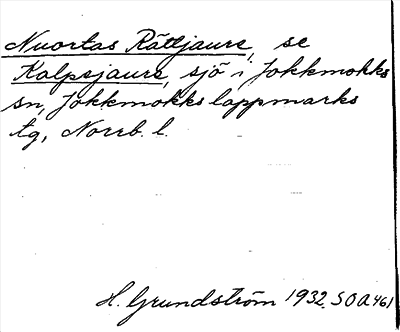 Nuortas Rättjaure, se
Kalpsjaure, sjö i Jokkmokks
sn, Jokkmokks lappmarks
tg, Norrb. l.
H. Grundström 1932. SOA 461